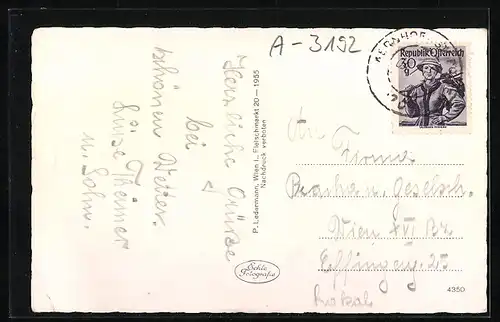 A-3192
Herzliche Grüße
bei
schönem Wetter
Luise Theimer
u. Sohn.
P. Ledermann, Wien I., Fleischmarkt 20 — 1955
Nachdruck verboten
Echte
Fotografie
Republik Österreich
30
g
An Firma
u. Gesellsch.
Wien XVI Bz
Effingerg. 25
4350